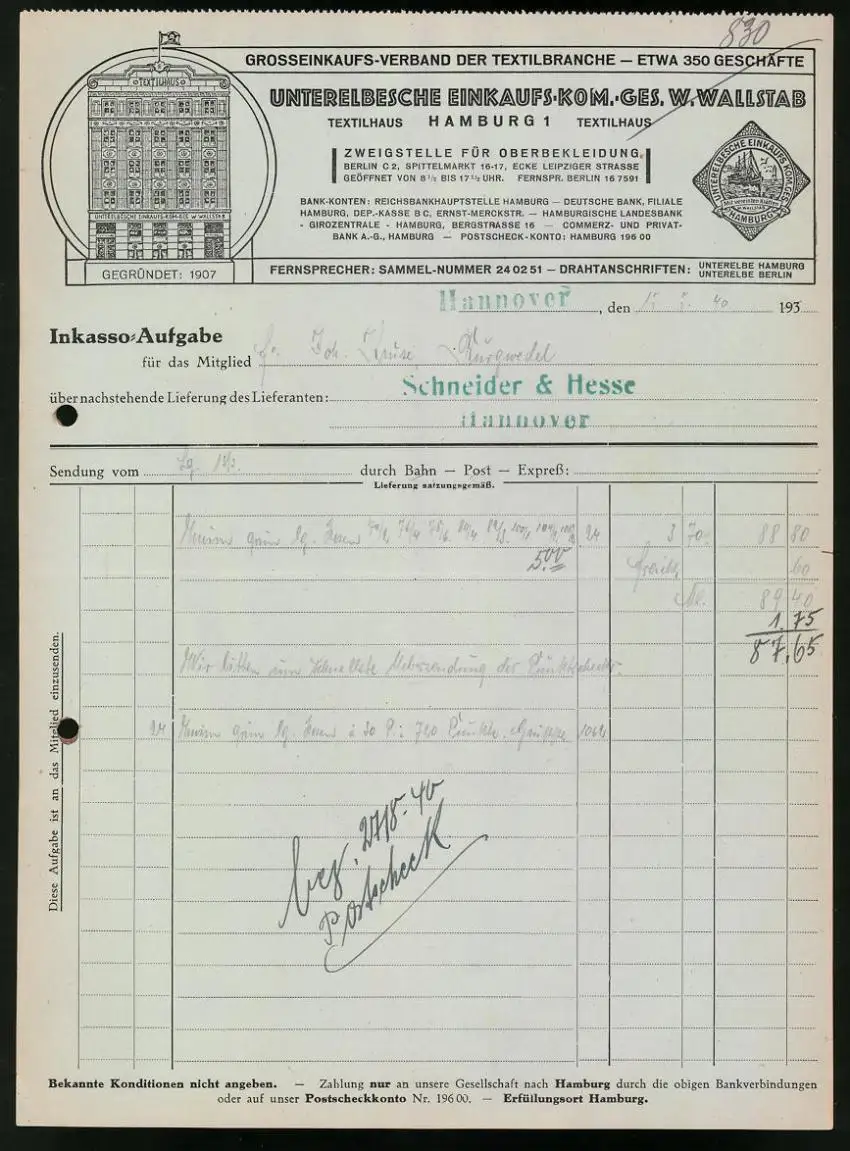 830
GROSSEINKAUFS-VERBAND DER TEXTILBRANCHE — ETWA 350 GESCHÄFTE
UNTERELBESCHE EINKAUFS-KOM.-GES. W. WALLSTAB
TEXTILHAUS HAMBURG 1 TEXTILHAUS
ZWEIGSTELLE FÜR OBERBEKLEIDUNG
BERLIN C 2, SPITTELMARKT 16-17, ECKE LEIPZIGER STRASSE
GEÖFFNET VON 8 1/2 BIS 17 1/2 UHR. FERNSPR. BERLIN 16 7591
BANK-KONTEN: REICHSBANKHAUPTSTELLE HAMBURG — DEUTSCHE BANK, FILIALE
HAMBURG, DEP.-KASSE B C, ERNST-MERCKSTR. — HAMBURGISCHE LANDESBANK
- GIROZENTRALE - HAMBURG, BERGSTRASSE 16 — COMMERZ- UND PRIVAT-
BANK A.-G., HAMBURG — POSTSCHECK-KONTO: HAMBURG 196 00
TEXTILHAUS
UNTERELBESCHE EINKAUFS-KOM-GES W WALLSTAB
GEGRÜNDET: 1907
UNTERELBESCHE EINKAUFS-KOM.-GES.
Mit vereinten Kräften
W. WALLSTAB
HAMBURG
FERNSPRECHER: SAMMEL-NUMMER 24 02 51 — DRAHTANSCHRIFTEN: UNTERELBE HAMBURG
UNTERELBE BERLIN
Hannover, den 40 193
Inkasso-Aufgabe
für das Mitglied Joh. Burgwedel
über nachstehende Lieferung des Lieferanten: Schneider & Hesse
Hannover
Sendung vom durch Bahn — Post — Expreß:
Lieferung satzungsgemäß.
grün 24 3 70 88 80
5.00 60
89 40
1.75
87,65
Wir bitten um schnellste Uebersendung der Punktschecks.
24 grün à 30 P. = 720 Punkte. Gruppe
bez. 27/8.40
Postscheck
Diese Aufgabe ist an das Mitglied einzusenden.
Bekannte Konditionen nicht angeben. — Zahlung nur an unsere Gesellschaft nach Hamburg durch die obigen Bankverbindungen
oder auf unser Postscheckkonto Nr. 196 00. — Erfüllungsort Hamburg.